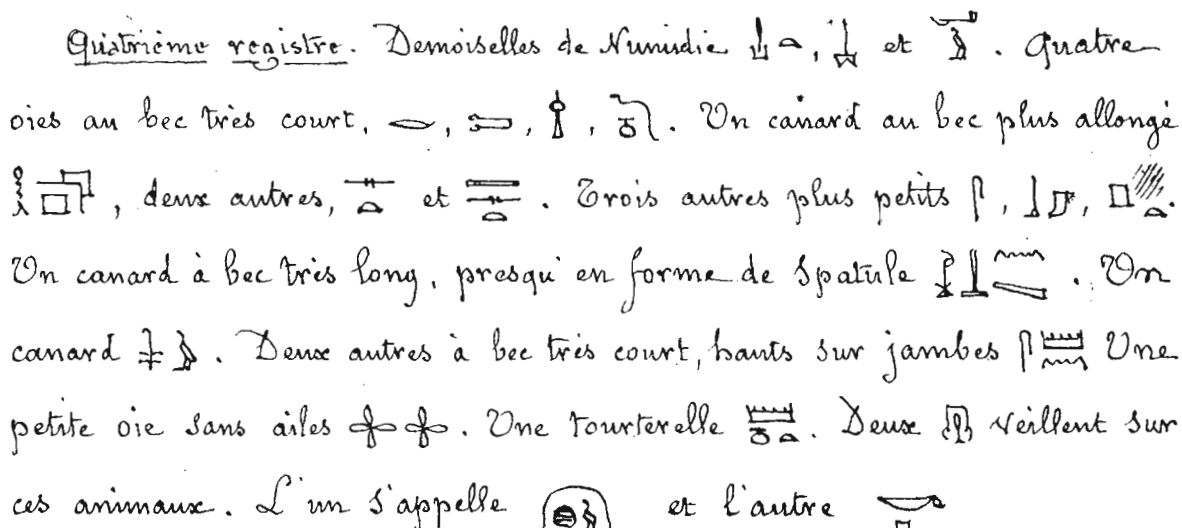 Quatrième registre. Demoiselles de Numidie , et . Quatre
oies au bec très court, , , , . Un canard au bec plus allongé
, deux autres, et . Trois autres plus petits , , .
Un canard à bec très long, presqu'en forme de spatule . Un
canard . Deux autres à bec très court, hauts sur jambes Une
petite oie sans ailes . Une tourterelle . Deux veillent sur
ces animaux. L'un s'appelle et l'autre